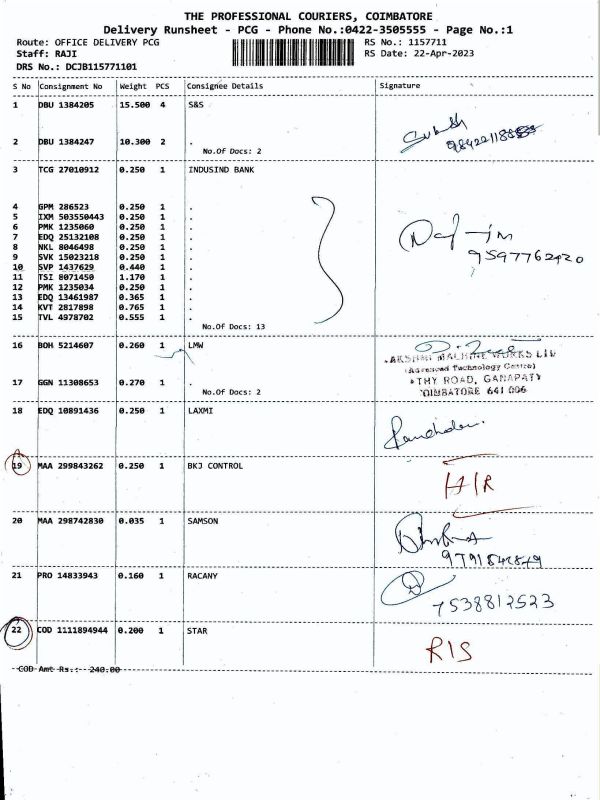 THE PROFESSIONAL COURIERS, COIMBATORE
Delivery Runsheet - PCG - Phone No.:0422-3505555 - Page No.:1
Route: OFFICE DELIVERY PCG RS No.: 1157711
Staff: RAJI RS Date: 22-Apr-2023
DRS No.: DCJB115771101
S No Consignment No Weight PCS Consignee Details Signature
1 DBU 1384205 15.500 4 S&S
2 DBU 1384247 10.300 2 .
No.Of Docs: 2
3 TCG 27010912 0.250 1 INDUSIND BANK
4 GPM 286523 0.250 1 .
5 IXM 503550443 0.250 1 .
6 PMK 1235060 0.250 1 .
7 EDQ 25132108 0.250 1 .
8 NKL 8046498 0.250 1 .
9 SVK 15023218 0.250 1 .
9597762420
10 SVP 1437629 0.440 1 .
11 TSI 8071450 1.170 1 .
12 PMK 1235034 0.250 1 .
13 EDQ 13461987 0.365 1 .
14 KVT 2817898 0.765 1 .
15 TVL 4978702 0.555 1 .
No.Of Docs: 13
16 BOH 5214607 0.260 1 LMW
LAKSHMI MACHINE WORKS LTD
(Advanced Technology Centre)
17 GGN 11308653 0.270 1 .
THY ROAD, GANAPATY
No.Of Docs: 2
OIMBATORE 641 006
18 EDQ 10891436 0.250 1 LAXMI
19 MAA 299843262 0.250 1 BKJ CONTROL
20 MAA 298742830 0.035 1 SAMSON
21 PRO 14833943 0.160 1 RACANY
7538812523
22 COD 1111894944 0.200 1 STAR
RIS
COD Amt Rs.: 240.00